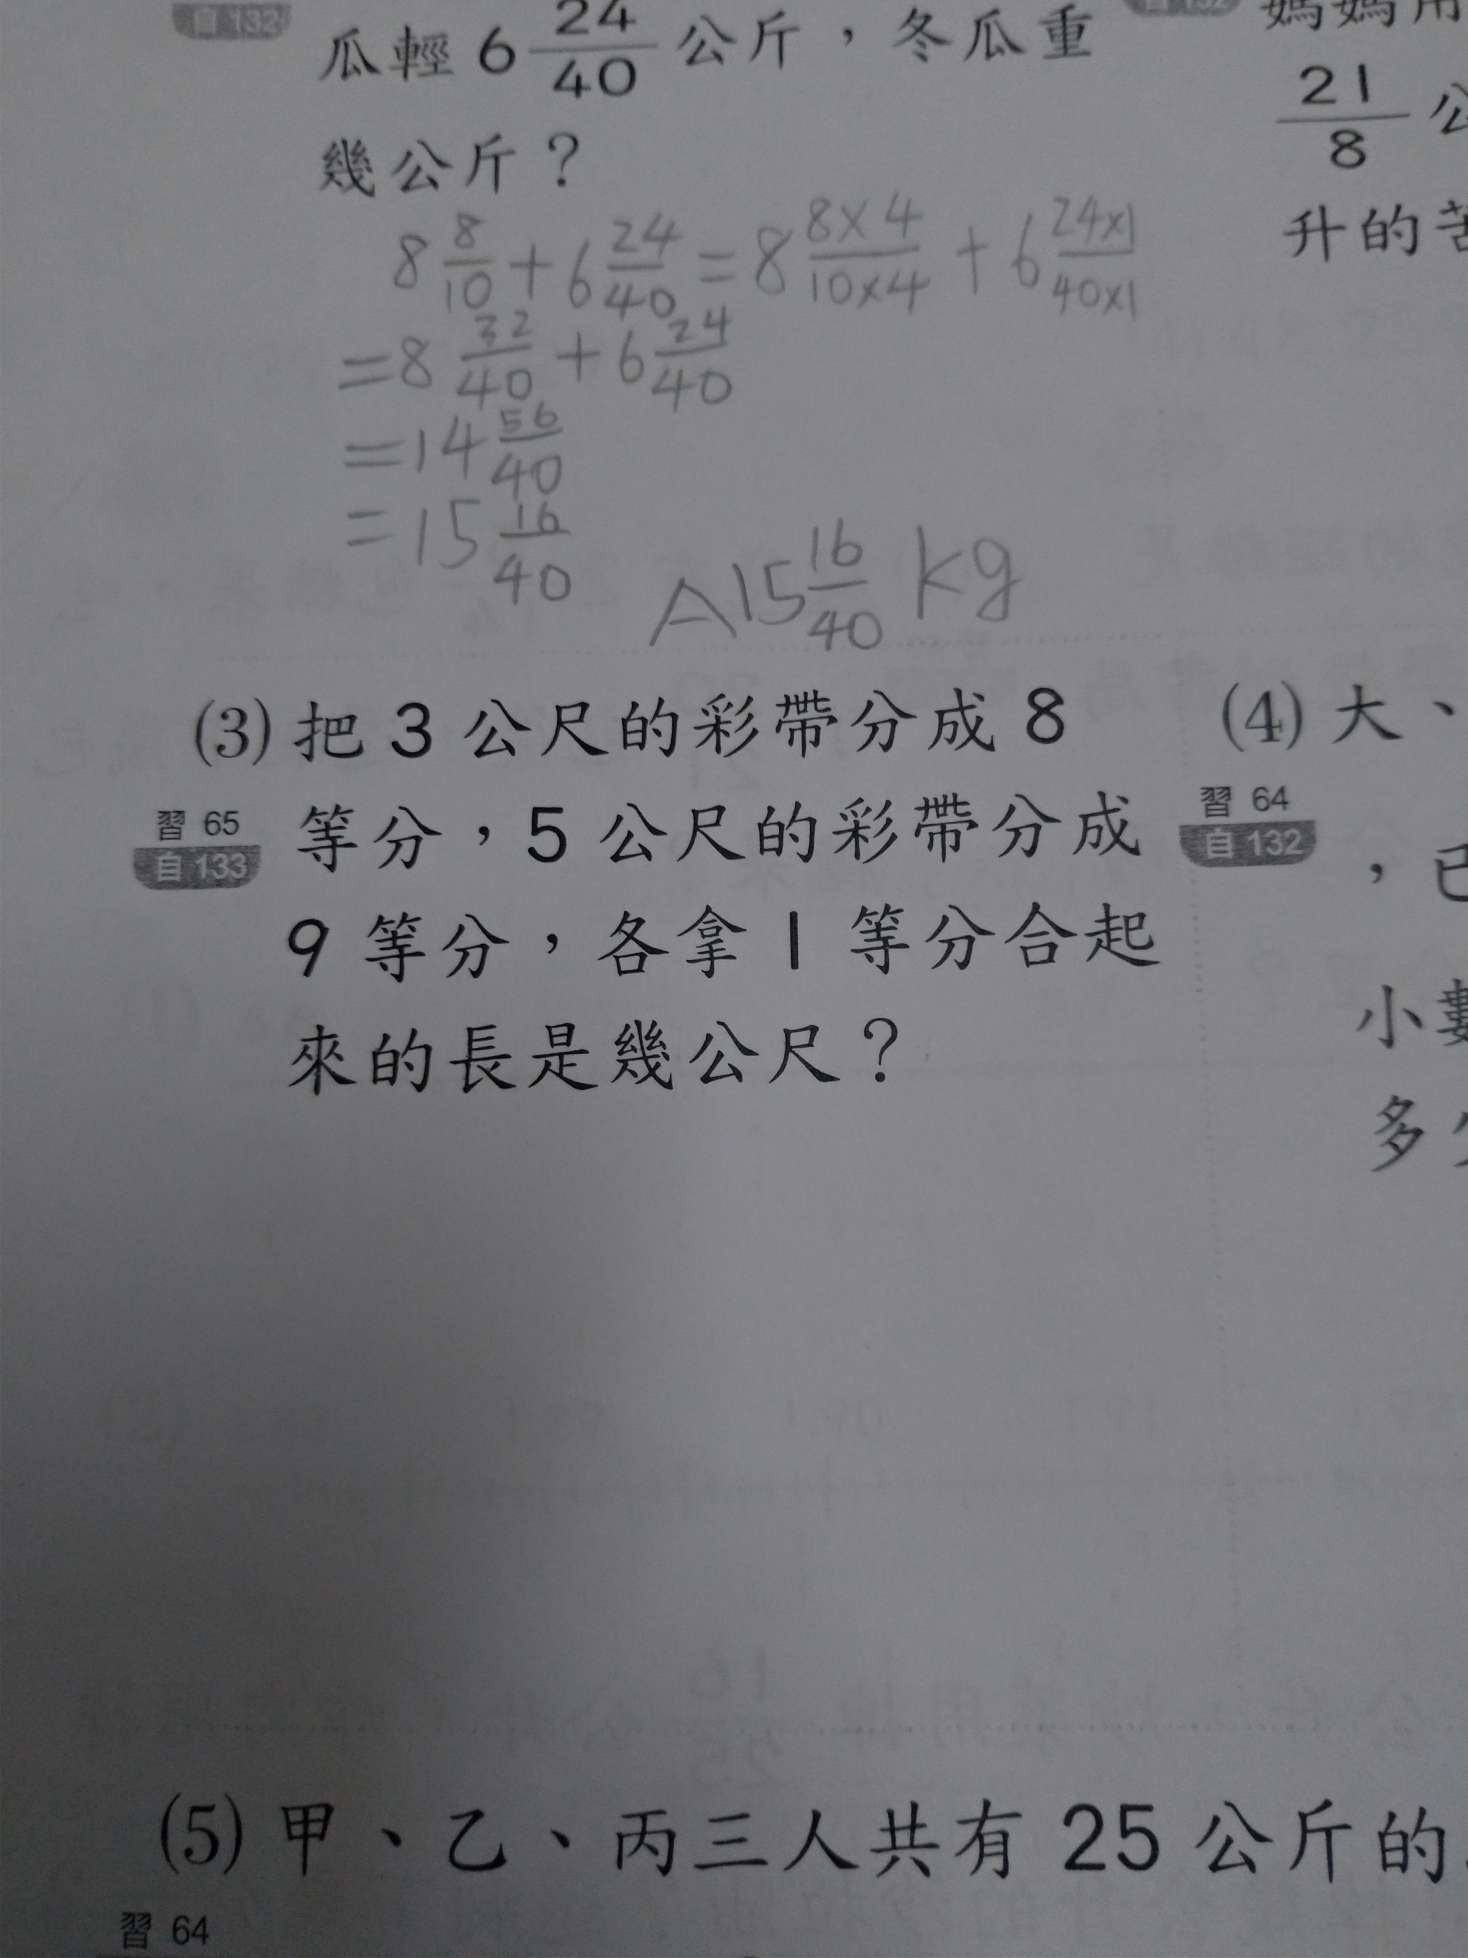 自 132
瓜輕 6 24/40 公斤，冬瓜重
幾公斤？
8 8/10 + 6 24/40 = 8 8×4/10×4 + 6 24×1/40×1
= 8 32/40 + 6 24/40
= 14 56/40
= 15 16/40
A 15 16/40 kg
21/8 公
升的苦
(3) 把 3 公尺的彩帶分成 8
習 65
自 133
等分，5 公尺的彩帶分成
9 等分，各拿 1 等分合起
來的長是幾公尺？
(4) 大、
習 64
自 132
，已
小數
多少
(5) 甲、乙、丙三人共有 25 公斤的
習 64